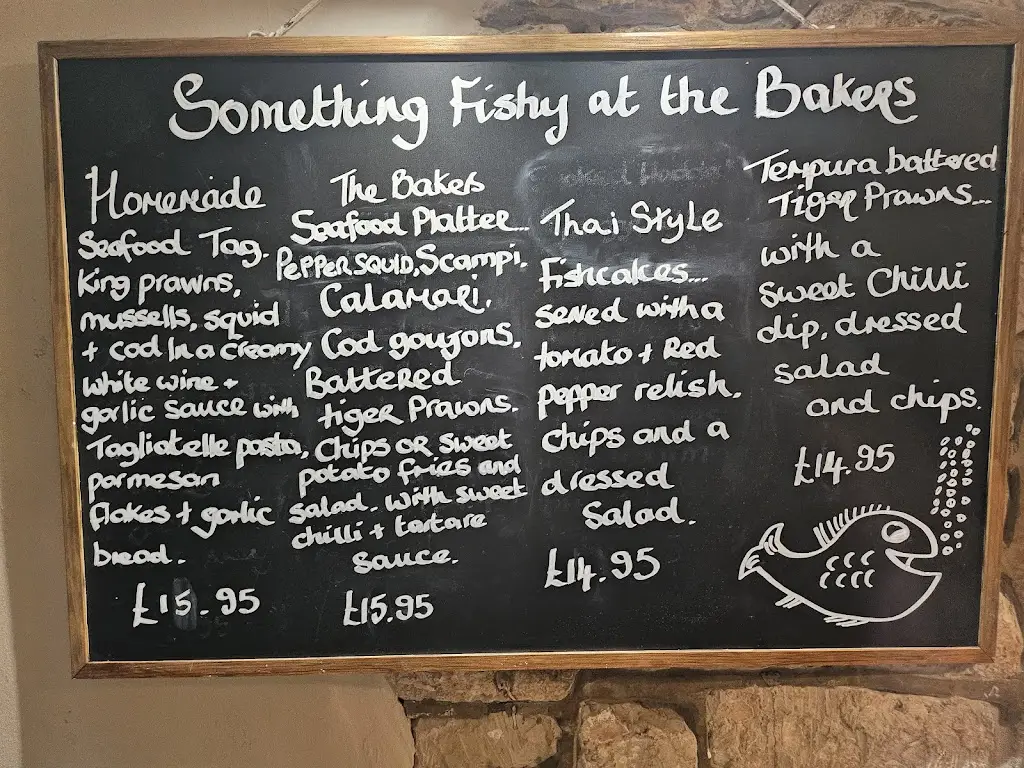 Something Fishy at the Bakers
Homemade
Seafood Tag.
King prawns,
mussells, squid
+ cod In a creamy
white wine +
garlic sauce with
Tagliatelle pasta,
parmesan
flakes + garlic
bread.
£15.95
The Bakers
Seafood Platter...
Pepper Squid, Scampi.
Calamari.
Cod goujons.
Battered
tiger Prawns.
Chips or sweet
potato fries and
salad. with sweet
chilli + tartare
sauce.
£15.95
Thai Style
Fishcakes...
served with a
tomato + Red
pepper relish.
chips and a
dressed
Salad.
£14.95
Tempura battered
Tiger Prawns...
with a
sweet Chilli
dip, dressed
salad
and chips.
£14.95